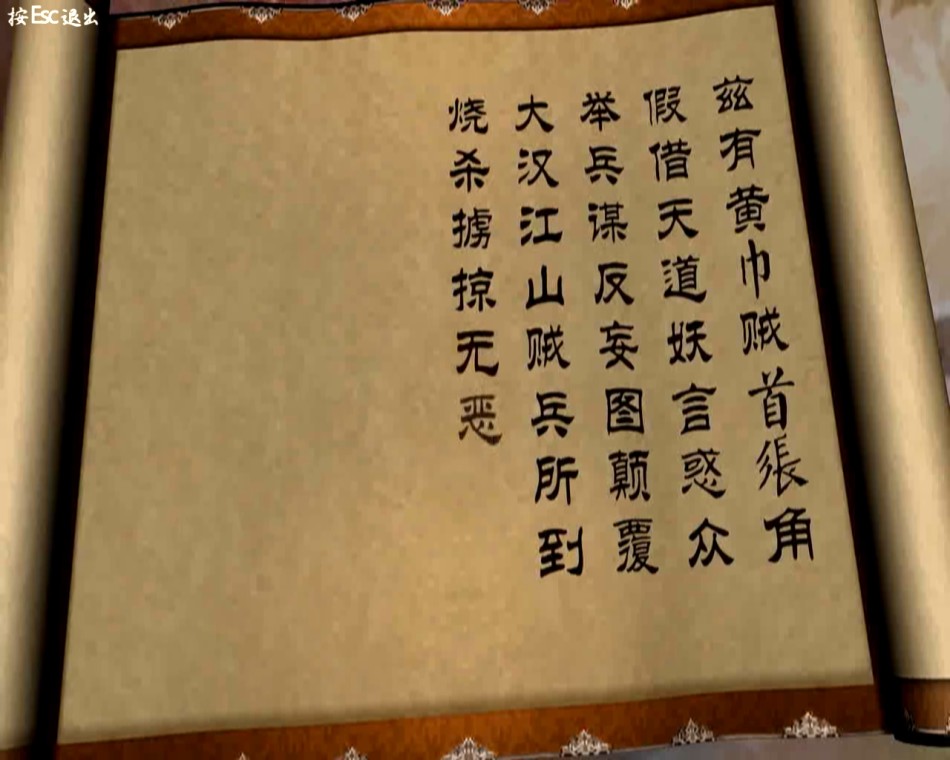 按Esc退出
兹有黄巾贼首張角
假借天道妖言惑众
举兵谋反妄图颠覆
大汉江山贼兵所到
烧杀掳掠无恶